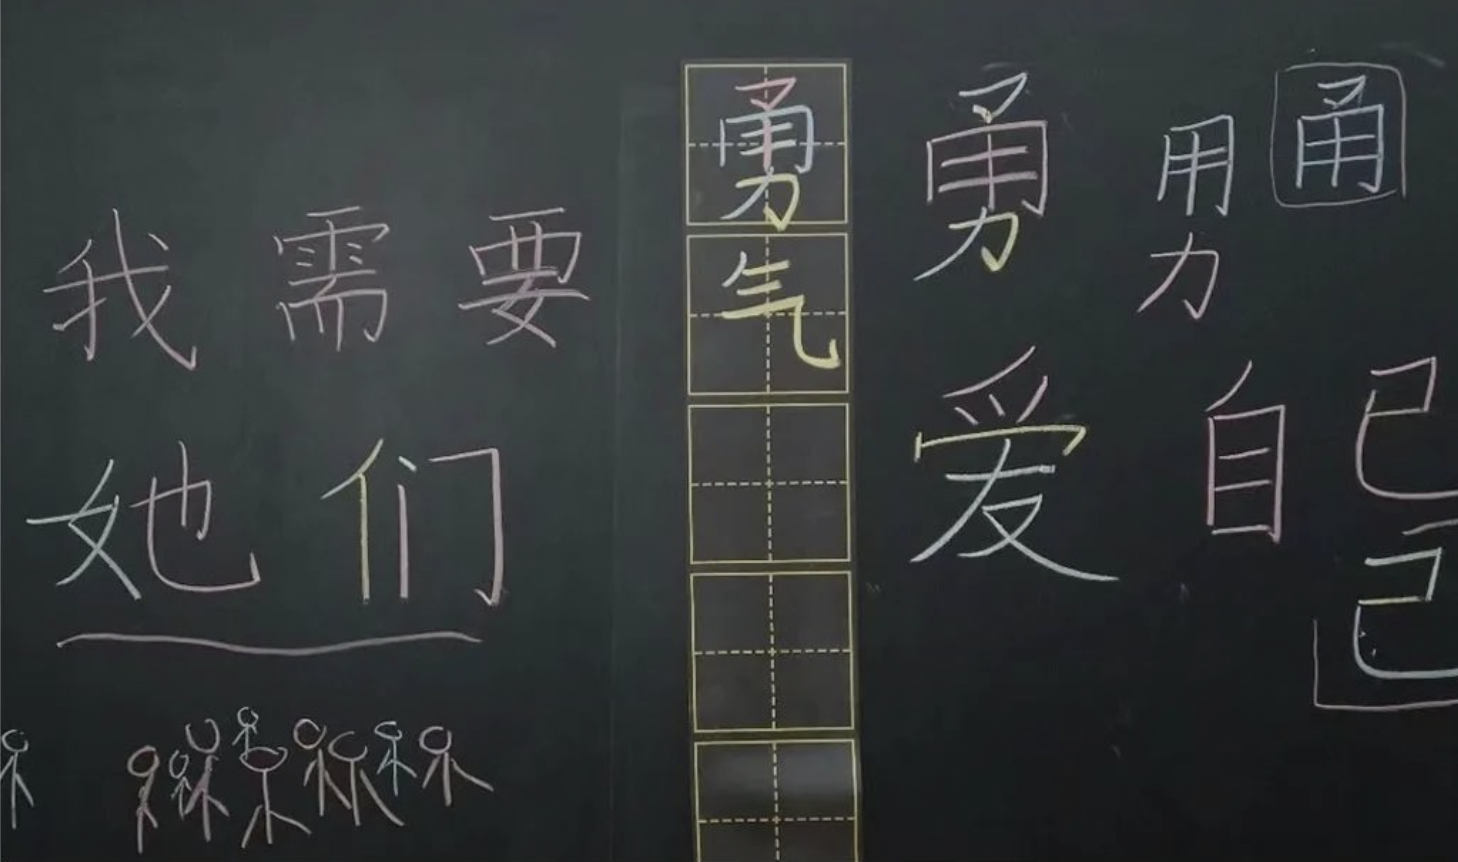 我需要
她们
勇气
勇 用 甬
力
爱自己
己